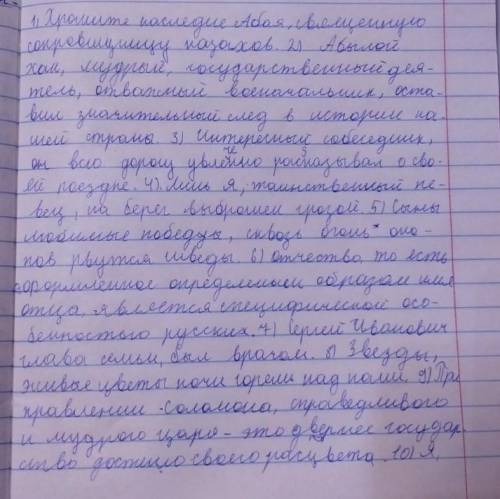 1) Храните наследие Абая, священную
сокровищницу казахов. 2) Абылай
хан, мудрый, государственный дея-
тель, отважный военачальник, оста-
вил значительный след в истории на-
шей страны. 3) Интересный собеседник,
он всю дорогу увлеченно рассказывал о сво-
ей поездке. 4) Лишь я, таинственный пе-
вец, на берег выброшен грозой. 5) Сыны
любимые победы, сквозь огонь око-
пов рвутся шведы. 6) Отчество, то есть
оформленное определенным образом имя
отца, является специфической осо-
бенностью русских. 7) Сергей Иванович
глава семьи, был врачом. 8) Звезды,
живые цветы ночи горели над нами. 9) При
правлении Соломона, справедливого
и мудрого царя - это древнее государ-
ство достигло своего расцвета. 10) Я,